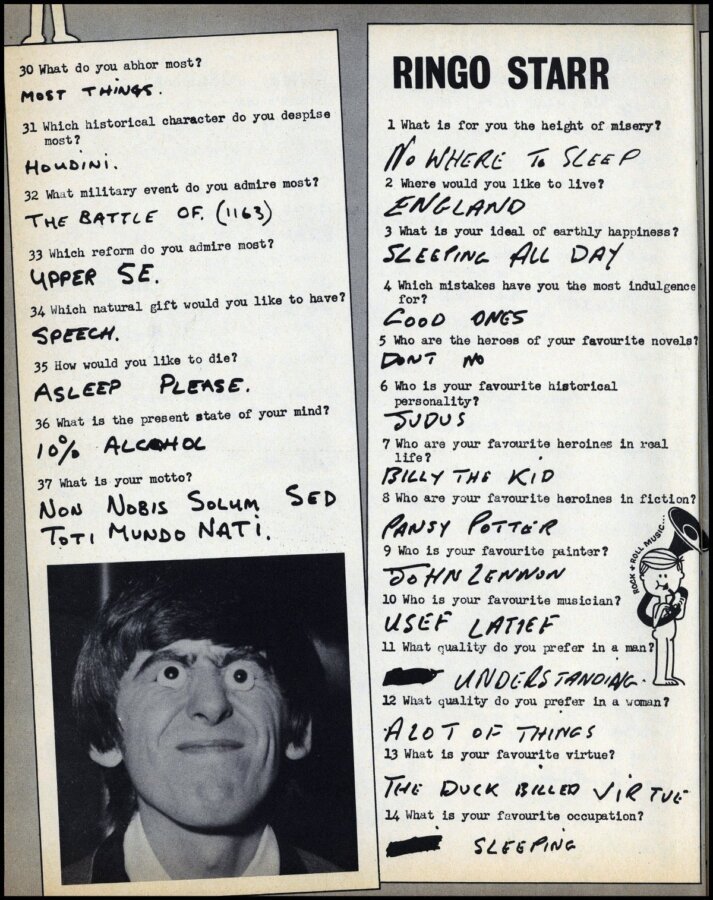 30 What do you abhor most?
MOST THINGS.
31 Which historical character do you despise
most?
HOUDINI.
32 What military event do you admire most?
THE BATTLE OF. (1163)
33 Which reform do you admire most?
UPPER 5E.
34 Which natural gift would you like to have?
SPEECH.
35 How would you like to die?
ASLEEP PLEASE.
36 What is the present state of your mind?
10% ALCOHOL
37 What is your motto?
NON NOBIS SOLUM SED
TOTI MUNDO NATI.
RINGO STARR
1 What is for you the height of misery?
NO WHERE To SLEEP
2 Where would you like to live?
ENGLAND
3 What is your ideal of earthly happiness?
SLEEPING ALL DAY
4 Which mistakes have you the most indulgence
for?
GOOD ONES
5 Who are the heroes of your favourite novels?
DONT NO
6 Who is your favourite historical
personality?
JUDUS
7 Who are your favourite heroines in real
life?
BILLY THE KID
8 Who are your favourite heroines in fiction?
PANSY POTTER
9 Who is your favourite painter?
JOHN LENNON
10 Who is your favourite musician?
USEF LATIEF
11 What quality do you prefer in a man?
UNDERSTANDING.
12 What quality do you prefer in a woman?
A LOT OF THINGS
13 What is your favourite virtue?
THE DUCK BILLED VIRTUE
14 What is your favourite occupation?
SLEEPING
ROCK + ROLL MUSIC...